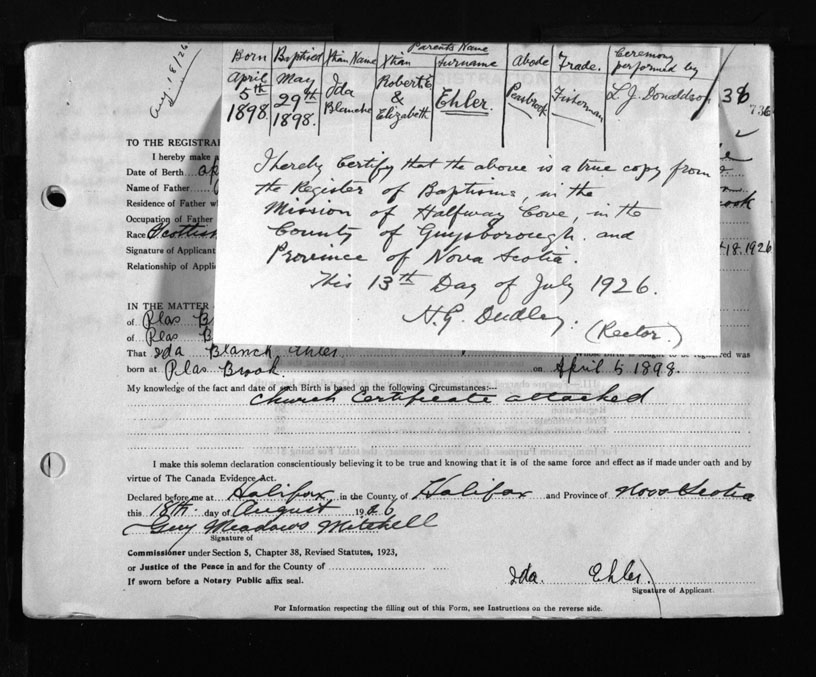 Aug. 18/26
Parents Name
Born Baptised Xtian Name Xtian Surname Abode Trade. Ceremony performed by
April 5th 1898. May 29th 1898. Ida Blanche Robert E. & Elizabeth Ehler. Peasbrook Fisherman L. J. Donaldson 36
736
2
I hereby Certify that the above is a true copy from
the Register of Baptisms, in the
Mission of Halfway Cove, in the
County of Guysborough. and
Province of Nova Scotia.
This 13th Day of July 1926.
H. G. Dudley. (Rector.)
TO THE REGISTRAR
I hereby make
Date of Birth
Name of Father
Residence of Father
Occupation of Father
Race Scottish
Signature of Applicant 18.1926
Relationship of Appli
IN THE MATTER
of Plas B
of Plas B
That Ida Blanch Ehler registered was
born at Plas Brook on April 5 1898.
My knowledge of the fact and date of such Birth is based on the following Circumstances:—
Church Certificate attached
I make this solemn declaration conscientiously believing it to be true and knowing that it is of the same force and effect as if made under oath and by
virtue of The Canada Evidence Act.
Declared before me at Halifax, in the County of Halifax and Province of Nova Scotia
this 18th. day of August 1926
Guy Meadows Mitchell
Signature of
Commissioner under Section 5, Chapter 38, Revised Statutes, 1923,
or Justice of the Peace in and for the County of
If sworn before a Notary Public affix seal.
Ida Ehler
Signature of Applicant.
For Information respecting the filling out of this Form, see Instructions on the reverse side.